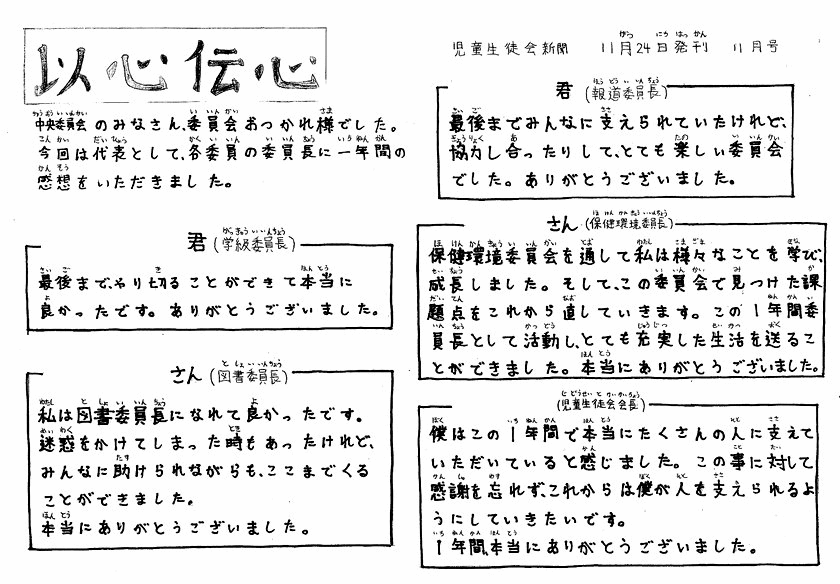 以心伝心
児童生徒会新聞 11月24日発刊 11月号
中央委員会のみなさん、委員会おつかれ様でした。
今回は代表として、各委員の委員長に一年間の
感想をいただきました。
君(学級委員長)
最後まで、やり切ることができて本当に
良かったです。ありがとうございました。
さん(図書委員長)
私は図書委員長になれて良かったです。
迷惑をかけてしまった時もあったけれど、
みんなに助けられながらも、ここまでくる
ことができました。
本当にありがとうございました。
君(報道委員長)
最後までみんなに支えられていたけれど、
協力し合ったりして、とても楽しい委員会
でした。ありがとうございました。
さん(保健環境委員長)
保健環境委員会を通して私は様々なことを学び、
成長しました。そして、この委員会で見つけた課
題点をこれから直していきます。この1年間委
員長として活動し、とても充実した生活を送るこ
とができました。本当にありがとうございました。
(児童生徒会会長)
僕はこの1年間で本当にたくさんの人に支えて
いただいていると感じました。この事に対して
感謝を忘れず、これからは僕が人を支えられるよ
うにしていきたいです。
1年間、本当にありがとうございました。